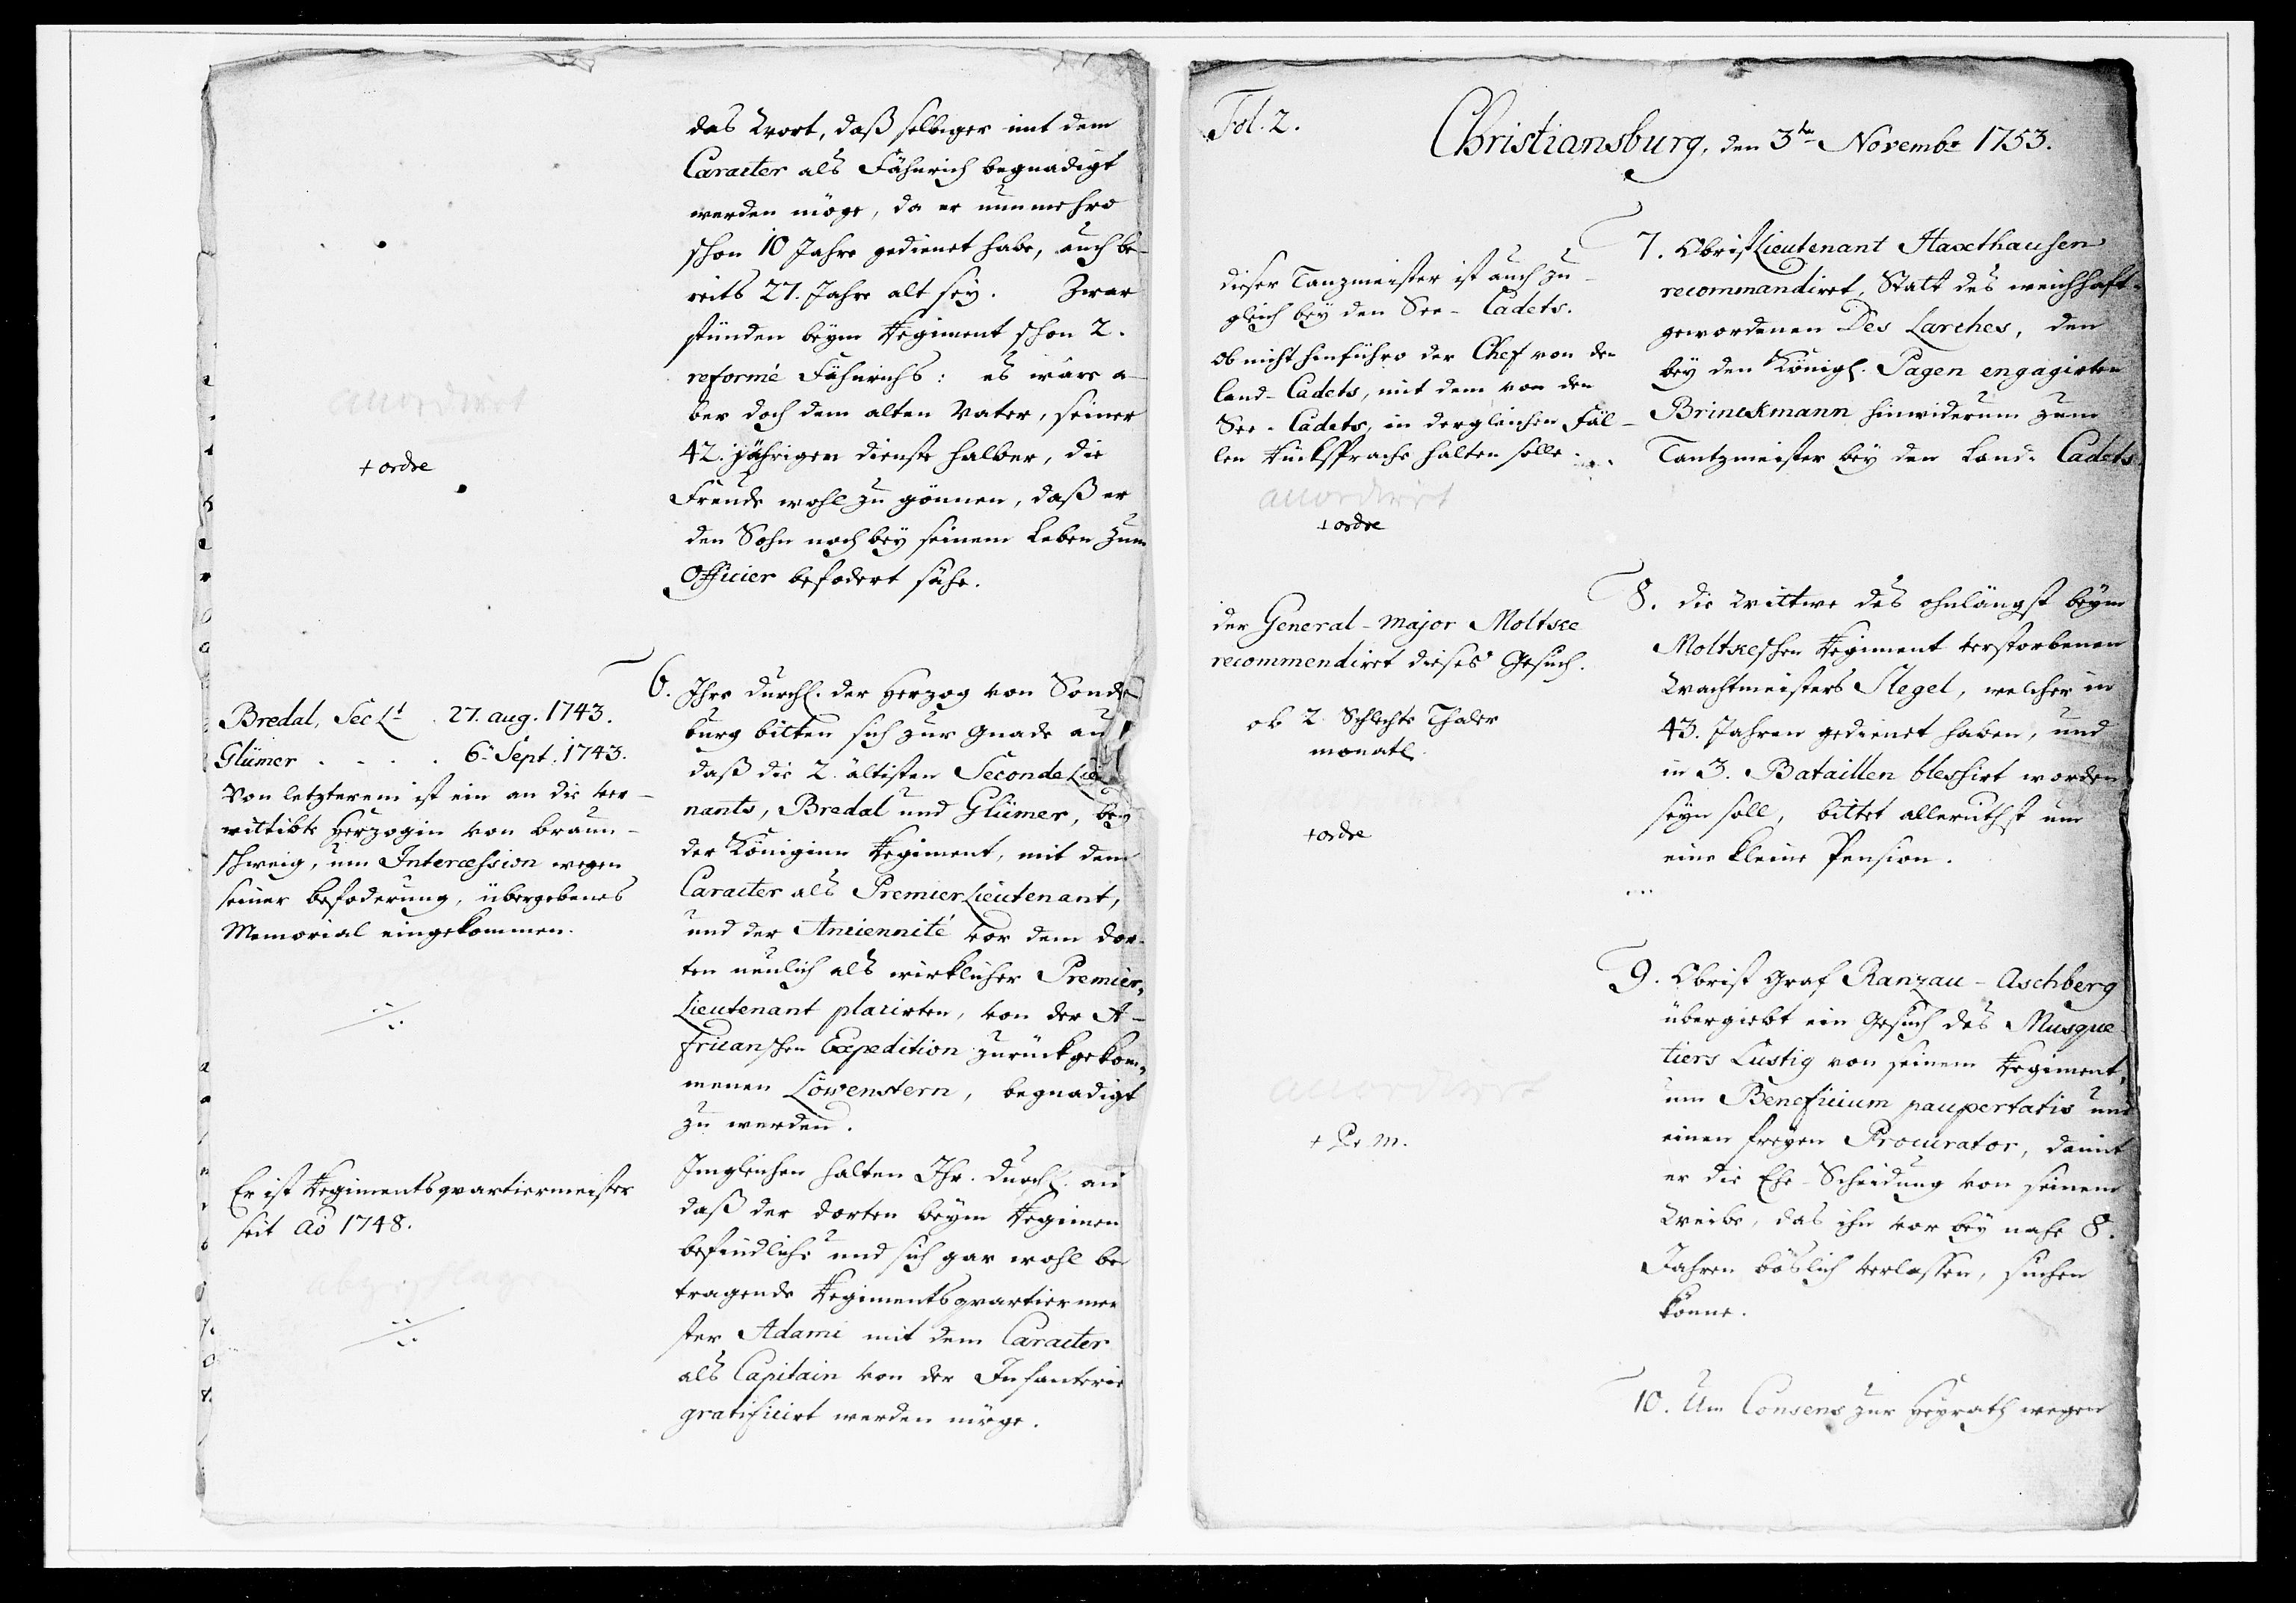 das Wort, daß selbiger mit dem
Caracter als Fähnrich begnadigt
werden möge, da er nunmehro
schon 10 Jahre gedienet habe, auch be-
reits 27. Jahre alt sey. Zwar
stünden beym Regiment schon 2.
reformé Fähnrichs: es wäre a-
ber doch dem alten Vater, seiner
42. jährigen dienste halber, die
Freude wohl zu gönnen, daß er
den Sohn noch bey seinem Leben zum
Officier befodert sähe.
accordirt
+ ordre
6. Ihro Durchl. der Herzog von Sonder
burg bitten sich zur Gnade aus
daß die 2. ältisten Seconde Lieu
nants, Bredal und Glümer, bey
der Königinn Regiment, mit dem
Caracter als Premier Lieutenant,
und der Anciennité vor dem dor-
ten neulich als wirklicher Premier-
Lieutenant placirten, von der A-
fricanschen Expedition zurückgekom-
menen Löwenstern, begnadigt
zu werden.
Imgleichen halten Ihr. Durchl. an
daß der dorten beym Regimen
befindliche und sich gar wohl be
tragende Regimentsquartiermei
ster Adami mit dem Caracter
als Capitain von der Infanterie
gratificirt werden möge.
Bredal, Sec Lt. 27. aug. 1743.
Glümer . . . . 6. Sept. 1743.
Von letzterem ist ein an die ver-
wittibte Herzogin von Braun-
schweig, um Intercession wegen
seiner befoderung, übergebenes
Memorial eingekommen.
Er ist Regimentsquartiermeister
seit Ao 1748.
abgeschlagen
Fol. 2.
Christiansburg, den 3ten Novembr 1753.
7. Obrist Lieutenant Haxthausen
recommandiret, Statt des weichhaft
gewordenen Des Larches, den
bey den Königl. Pagen engagirten
Brinckmann hinwiderum zum
Tantzmeister bey den Land-Cadets
dieser Tanzmeister ist auch zu-
gleich bey den See-Cadets.
Ob nicht hinführo der Chef von den
Land-Cadets, mit dem von den
See-Cadets, in dergleichen Fäl-
len Rücksprache halten solle.
accordirt
+ ordre
8. die Wittwe des ohnlängst beym
Moltkeschen Regiment verstorbenen
Wachtmeisters Slegel, welcher in
43. Jahren gedienet haben, und
in 3. Bataillen blessirt worden
seyn soll, bittet alleruthst um
eine kleine Pension.
der General-Major Moltke
recommendiret dieses Gesuch.
ob 2. Schlechte Thaler
monatl.
+ ordre
9. Obrist Graf Ranzau-Aschberg
übergiebt ein Gesuch des Musque
tiers Lustig von seinem Regiment,
um Beneficium paupertatis und
einen freyen Procurator, damit
er die Ehe-Scheidung von seinem
Weibe, das ihn vor bey nahe 8.
Jahren böslich verlassen, suchen
könne.
accordirt
+ P. M.
10. Um Consens zur Heyrath wegen